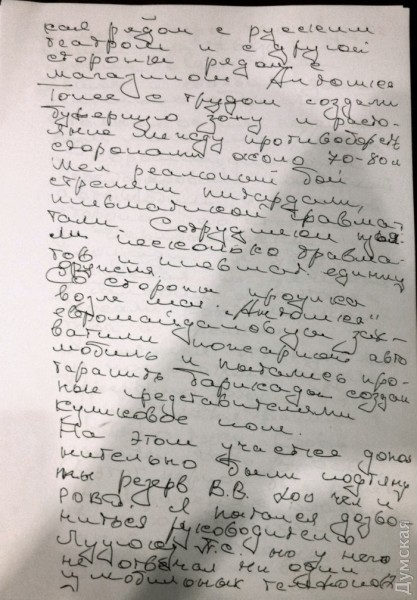 рядом с русским
театром и с другой
стороны рядом с
магазином Антошка
с трудом создали
буферную зону и расто-
яние между противоборст
сторонами около 70-80м
Шел реальный бой
стреляли петардами,
пневматикой травма-
тами. Сотрудники
ли несколько травма-
тов и пневмат единиц
Со стороны проулка
возле маг. "Антошка"
евромайдановцы зах-
ватили пожарный авто
мобиль и пытались про-
таранить барикады создан
ные представителями
куликовое поле.
На этом участке допол
нительно были подтяну
ты резерв В.В. 200 чел и
Я пытался дозво
ниться руководителю
но у него
не отвечал ни один
из мобильных телефонов
Думская